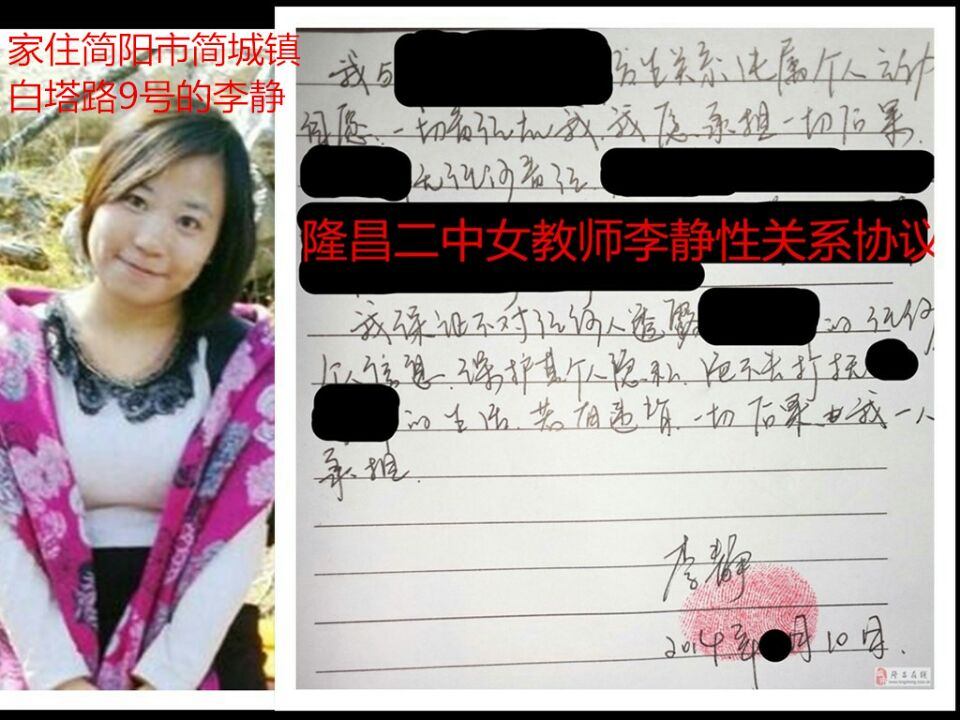 家住简阳市简城镇
白塔路9号的李静
我与 发生关系 纯属个人
一切 我 我愿承担一切后果.
无任何责任
隆昌二中女教师李静性关系协议
我保证不对任何人透露 的任何
个人信息.保护其个人隐私. 不去打扰
的生活.若有违背.一切后果由我一人
承担.
李静
2014年 月10日.
隆昌在线